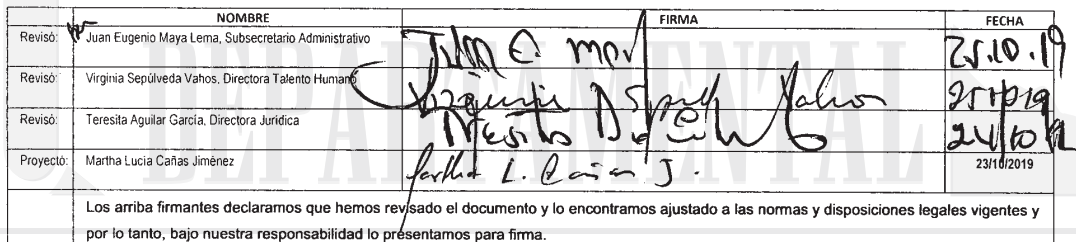 NOMBRE FIRMA FECHA
Revisó: Juan Eugenio Maya Lema, Subsecretario Administrativo Juan E. May 25.10.19
Revisó: Virginia Sepúlveda Vahos, Directora Talento Humano Virginia Sepulv Vahos 251019
Revisó: Teresita Aguilar García, Directora Jurídica Teresita 24/10
Proyectó: Martha Lucia Cañas Jiménez Martha L. Cañas J. 23/10/2019
Los arriba firmantes declaramos que hemos revisado el documento y lo encontramos ajustado a las normas y disposiciones legales vigentes y
por lo tanto, bajo nuestra responsabilidad lo presentamos para firma.
DEPARTAMENTAL